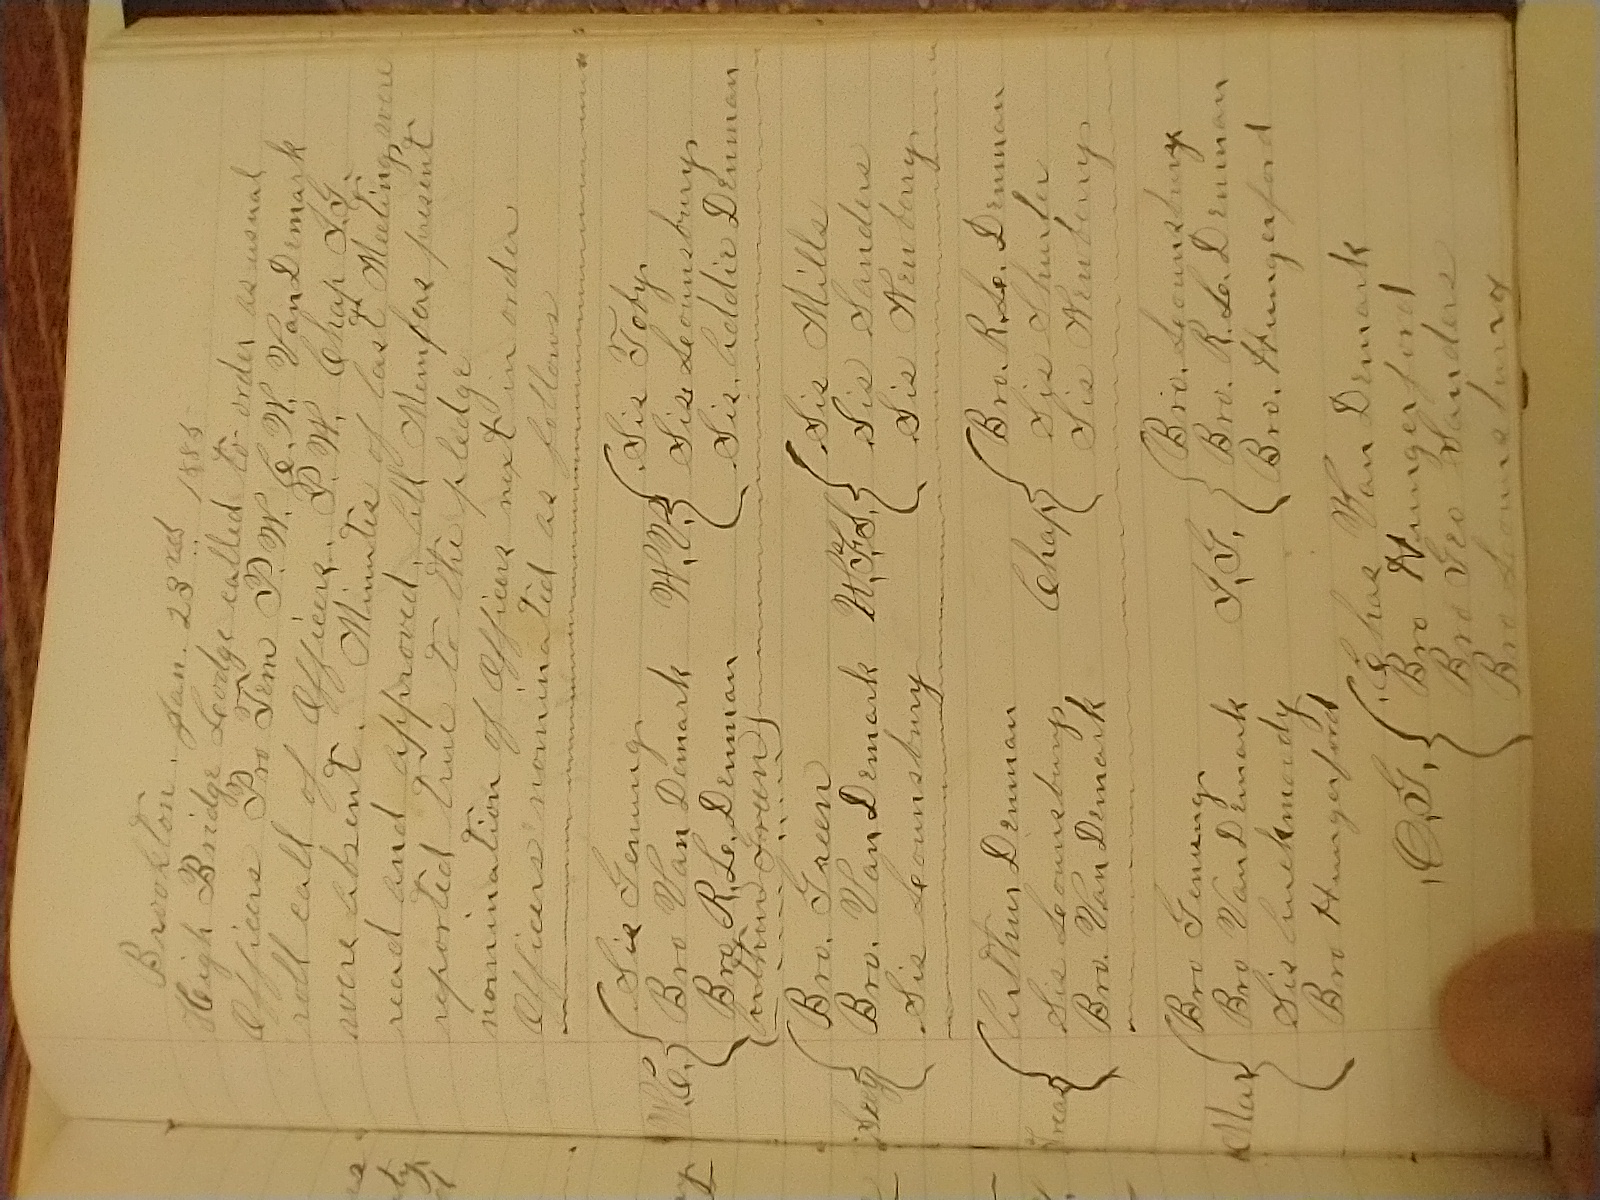 Brookton. Jan. 23rd 188
High Bridge Lodge called to order as usual
Officers Pro Tem P.W.C.T. W. Van Demark
roll call of Officers. P.W. Chap I.G.
were absent. Minutes of last Meeting were
read and approved. All Members present
reported true to the pledge
nomination of officers next in order
Officers nominated as follows
W.C. { Sis Genung
Bro Van Demark
Bro. R. Le. Denman
(Arthur Green)
W.V. { Sis Toby
Sis. Lounsbury
Sis. Addie Denman
Secy { Bro. Green
Bro. Van Demark
Sis Lounsbury
W.F.S. { Sis Mills
Sis Sanders
Sis Newberry
Treas { Arthur Denman
Sis Lounsbury
Bro. Van Demark
Chap { Bro. R. Le. Denman
Sis
Sis Newberry
Mar { Bro Genung
Bro Van Demark
Sis
Bro Hungerford
I.G. { Bro. Lounsbury
Bro. R. Le. Denman
Bro. Hungerford
O.G. { Chas Van Demark
Bro Hungerford
Bro Geo Sanders
Bro Lounsbury